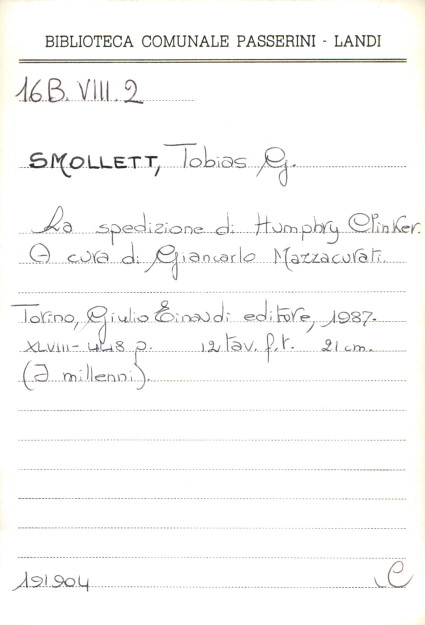 BIBLIOTECA COMUNALE PASSERINI - LANDI
16B. VIII. 2
SMOLLETT, Tobias G.
La spedizione di Humphry Clinker.
A cura di Giancarlo Mazzacurati.
Torino, Giulio Einaudi editore, 1987.
XLVIII-448 p. 12 tav. f.t. 21 cm.
(I millenni).
191904 C